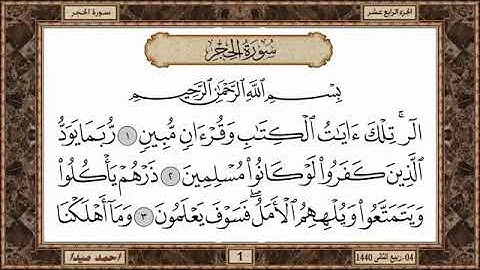 الجزء الرابع عشر
سورة الحجر
سُورَةُ الحِجْرِ
بِسْمِ اللَّهِ الرَّحْمَٰنِ الرَّحِيمِ
الٓرۚ تِلْكَ ءَايَٰتُ ٱلْكِتَٰبِ وَقُرْءَانٍ مُّبِينٍ ١ رُّبَمَا يَوَدُّ
ٱلَّذِينَ كَفَرُوا۟ لَوْ كَانُوا۟ مُسْلِمِينَ ٢ ذَرْهُمْ يَأْكُلُوا۟
وَيَتَمَتَّعُوا۟ وَيُلْهِهِمُ ٱلْأَمَلُۖ فَسَوْفَ يَعْلَمُونَ ٣ وَمَآ أَهْلَكْنَا
04- ربيع الثانى 1440
1
احمد